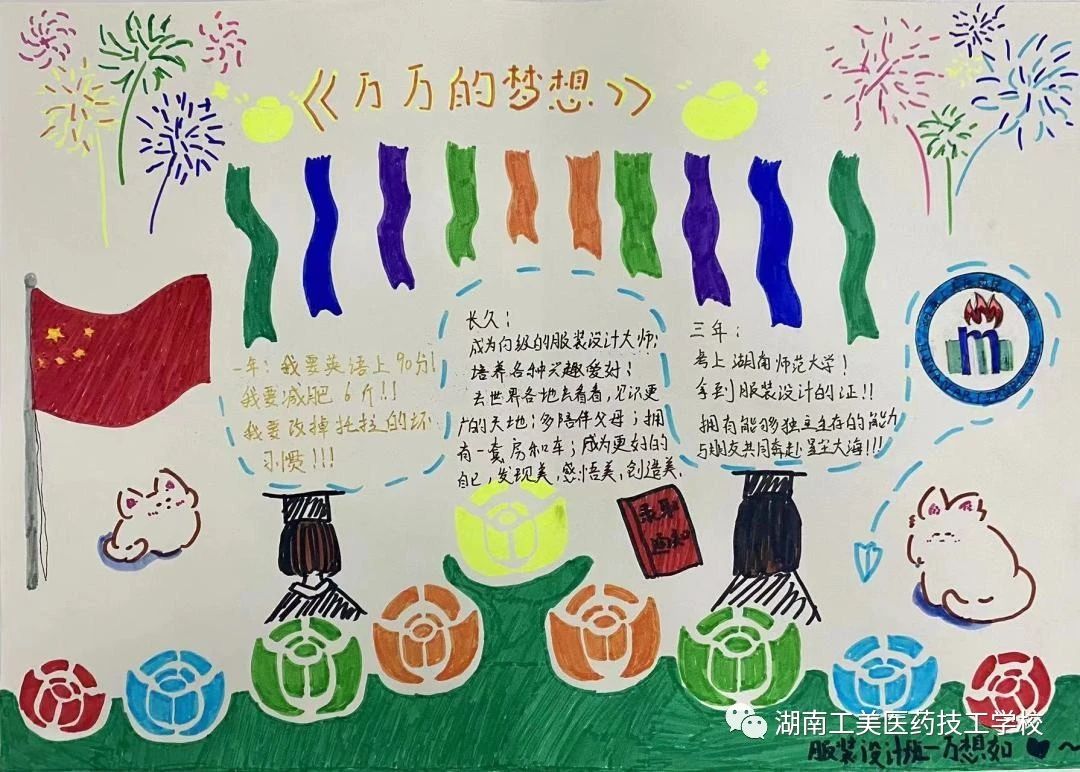 《万万的梦想》
一年：我要英语上90分！
我要减肥6斤！！
我要改掉托拉的坏
习惯！！！
长久：
成为向级的服装设计大师；
培养各种兴趣爱好；
去世界各地去看看，见识更
广的天地；多陪伴父母；拥
有一套房和车；成为更好的
自己，发现美，感悟美，创造美.
三年：
考上湖南师范大学！
拿到服装设计的证！！
拥有能够独立生存的能力
与朋友共同奔赴星尘大海！！！
m
录取
通知
湖南工美医药技工学校
服装设计班一万想如